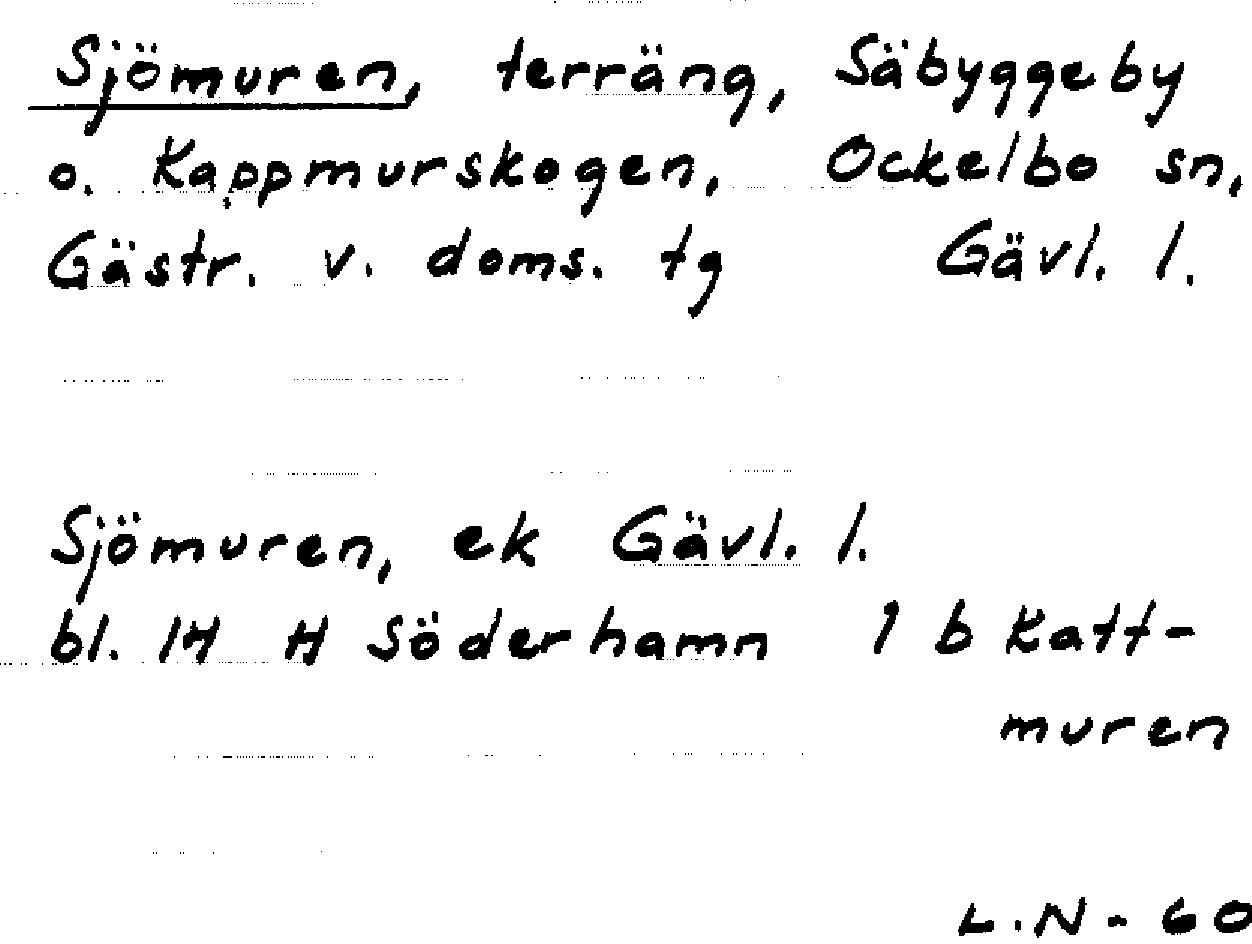 Sjömuren, terräng, Säbyggeby
o. Kappmurskogen, Ockelbo sn,
Gästr. v. doms. tg Gävl. l.
Sjömuren, ek Gävl. l.
bl. 14 H Söderhamn 1 b Katt-
muren
L.N - 60